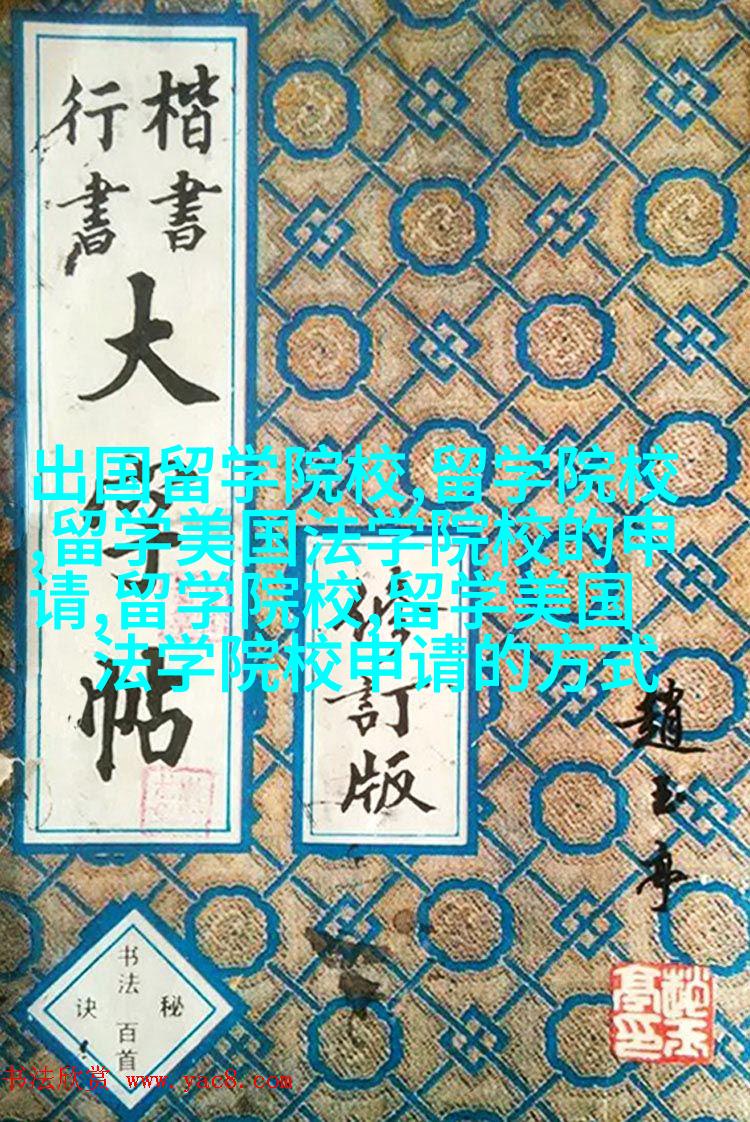 楷書
行書
大
帖
修訂版
出国留学院校,留学院校
,留学美国法学院校的申
请,留学院校,留学美国
法学院校申请的方式
趙玉亭
书法百首
秘诀
书法欣赏 www.yac8.com